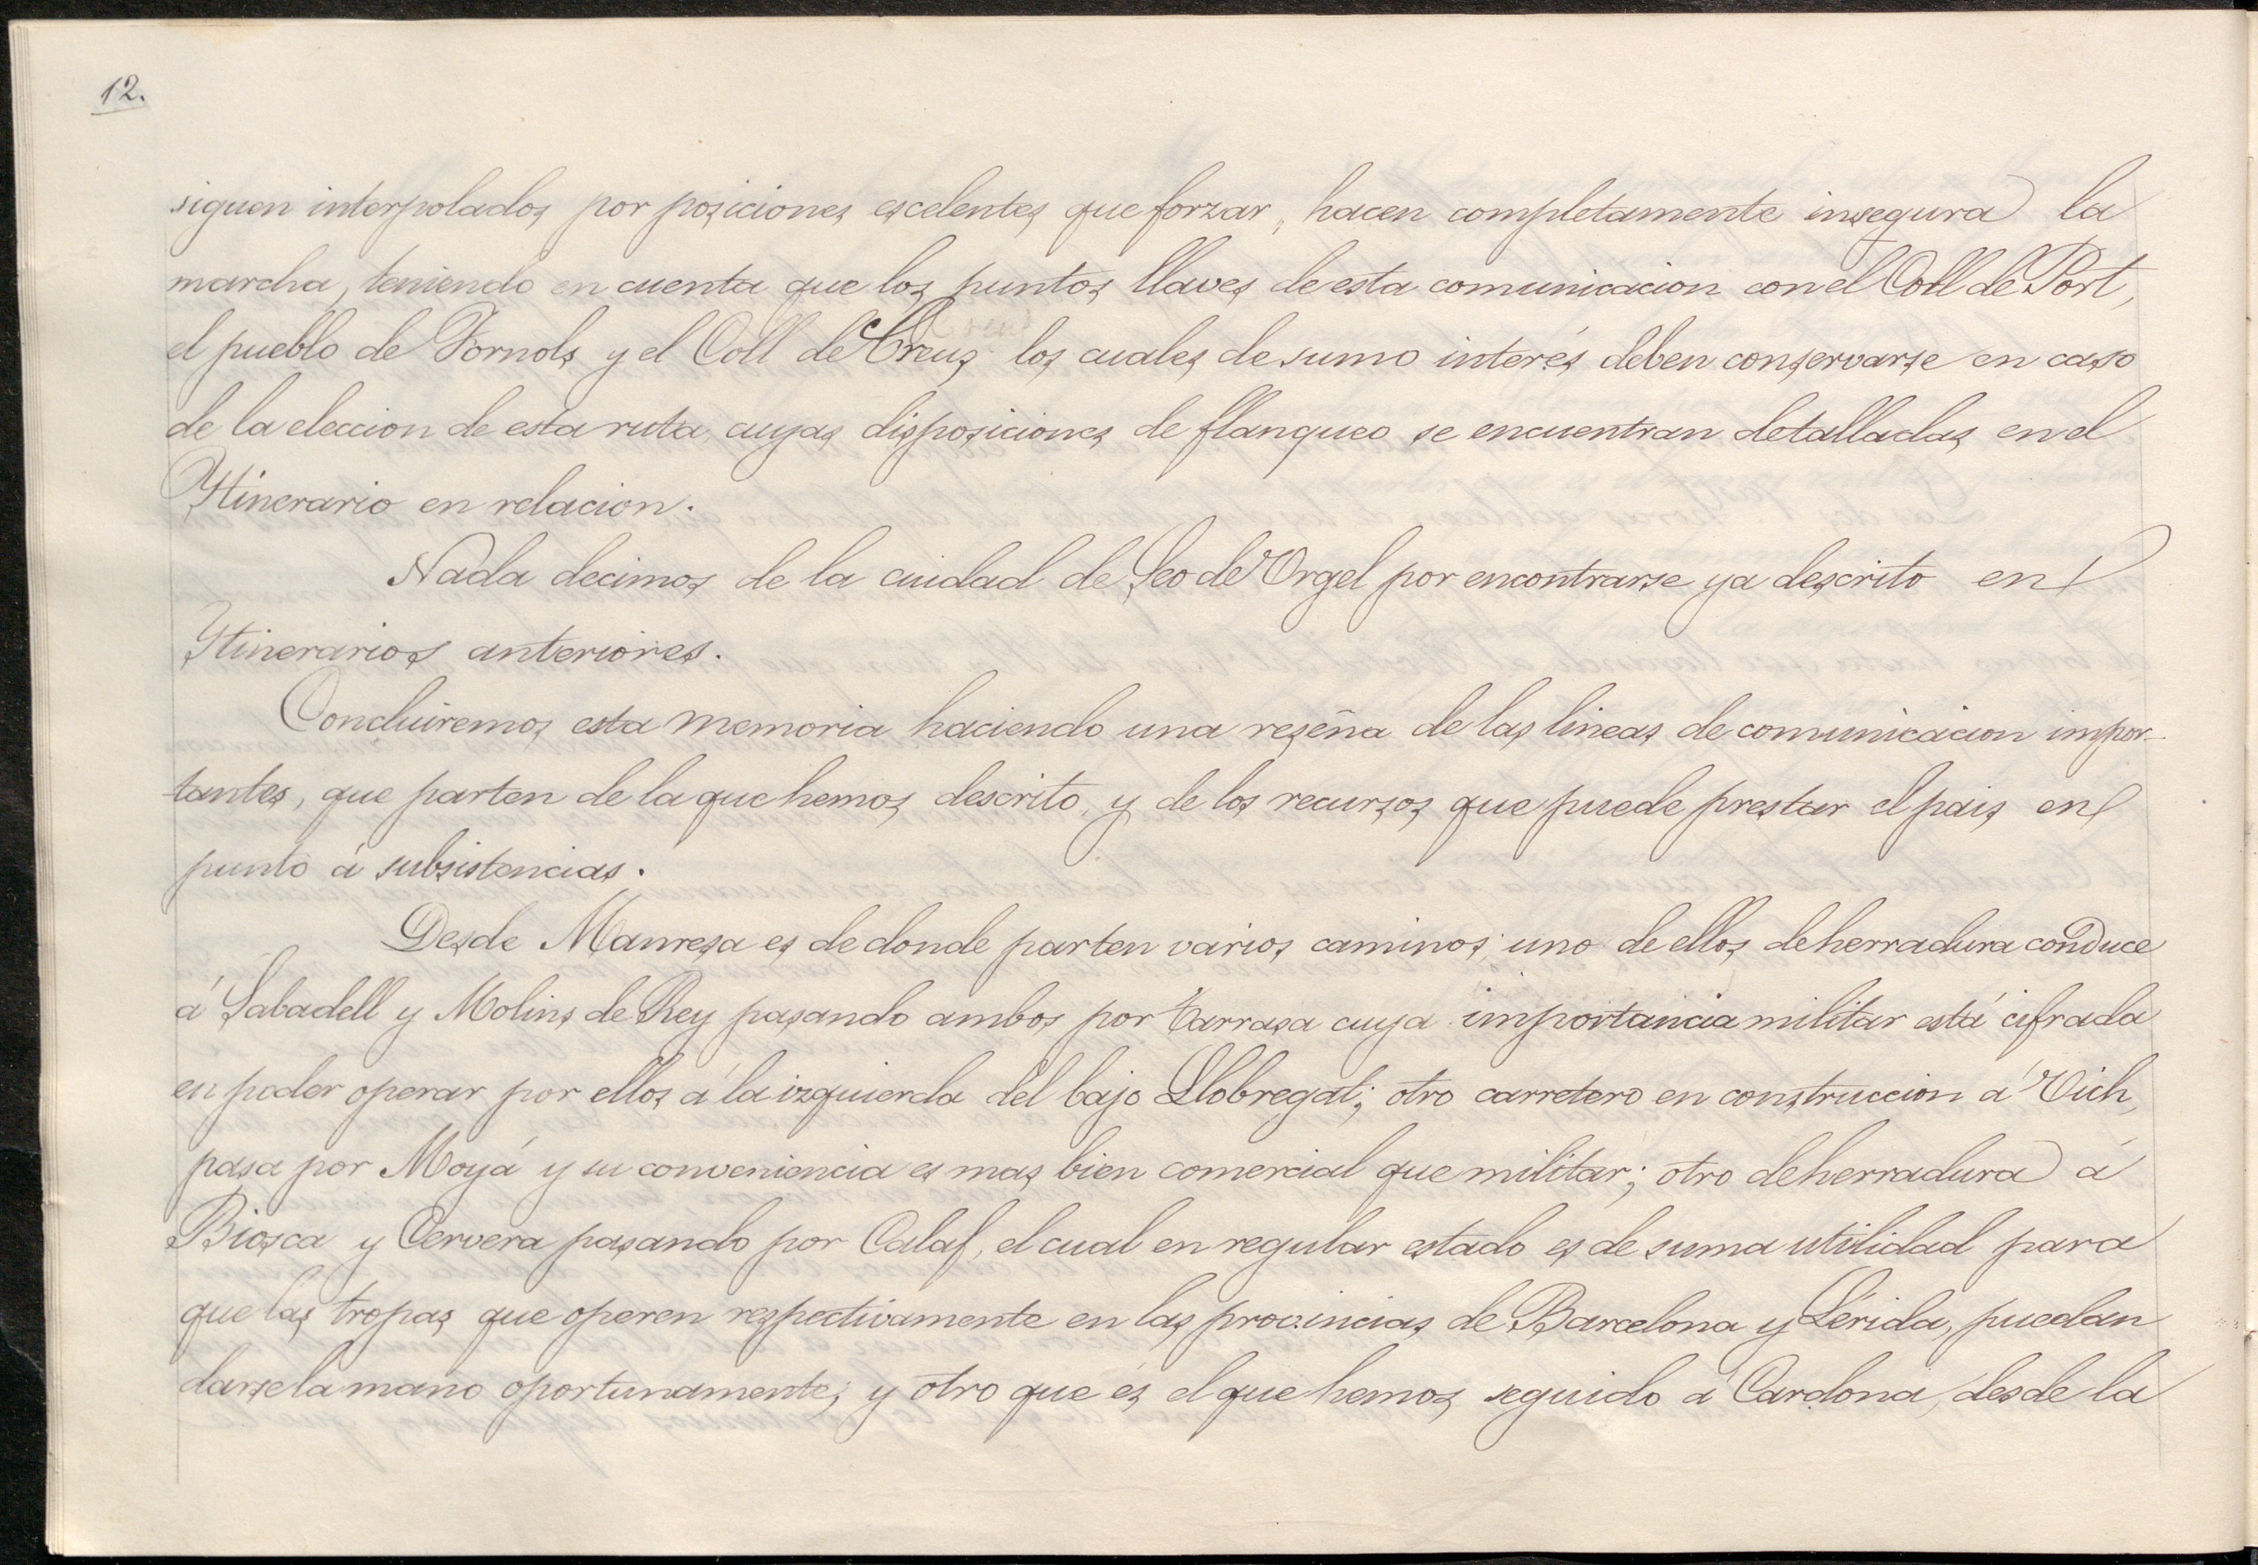 12.
siguen interpolados por posiciones escelentes que forzar, hacen completamente insegura la
marcha, teniendo en cuenta que los puntos llaves de esta comunicacion con el Coll de Port,
el pueblo de Fornols y el Coll de Creus los cuales de sumo interés deben conservarse en caso
de la eleccion de esta ruta cuyas disposiciones de flanqueo se encuentran detalladas en el
Ytinerario en relacion.
Nada decimos de la ciudad de Seo de Orgel por encontrarse ya descrito en
Ytinerarios anteriores.
Concluiremos esta memoria haciendo una reseña de las lineas de comunicacion impor-
tantes, que parten de la que hemos descrito, y de los recursos que puede prestar el pais en
punto á subsistencias.
Desde Manresa es de donde parten varios caminos; uno de ellos de herradura conduce
á Sabadell y Molins de Rey pasando ambos por Tarrasa cuya importancia militar está cifrada
en poder operar por ellos á la izquierda del bajo Llobregat; otro carretero en construccion á Vich,
pasa por Moyá y su conveniencia es mas bien comercial que militar; otro de herradura á
Biosca y Cervera pasando por Calaf, el cual en regular estado es de suma utilidad para
que las tropas que operen respectivamente en las provincias de Barcelona y Lérida, puedan
darse la mano oportunamente; y otro que és el que hemos seguido á Cardona, desde la